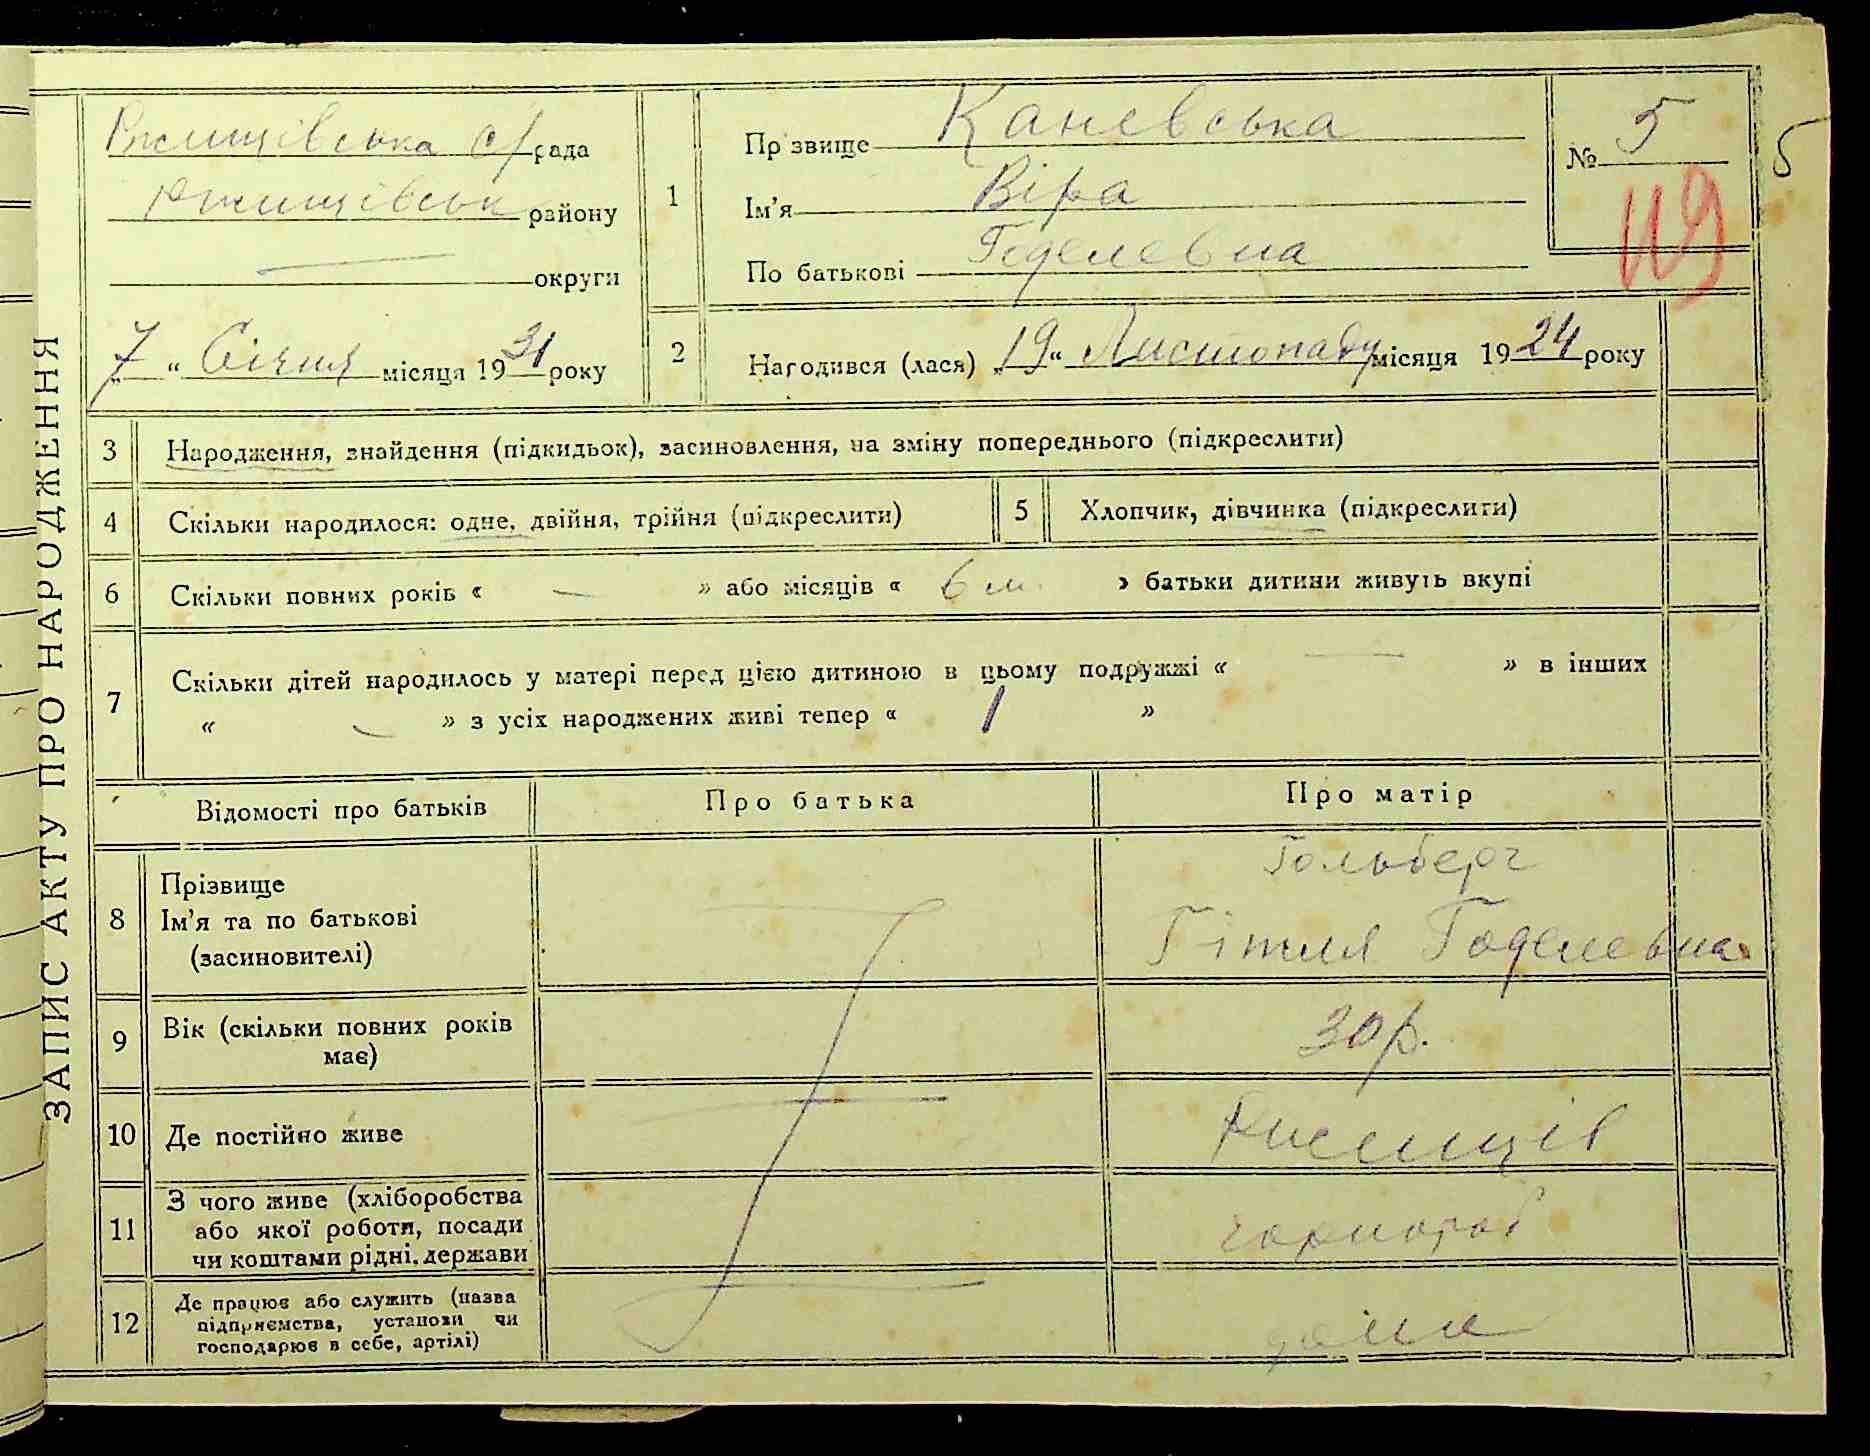 ЗАПИС АКТУ ПРО НАРОДЖЕННЯ
Ржищівська с/рада
Ржищівськ району
— округи
„7“ Січня місяця 1931 року
1
Прізвище Каневська
Ім’я Віра
По батькові Годелевна
№ 5
5
119
2 Народився (лася) „19“ Листопаду місяця 1924 року
3 Народження, знайдення (підкидьок), засиновлення, на зміну попереднього (підкреслити)
4 Скільки народилося: одне, двійня, трійня (підкреслити)
5 Хлопчик, дівчинка (підкреслити)
6 Скільки повних років « — » або місяців « 6 м. » батьки дитини живуть вкупі
7 Скільки дітей народилось у матері перед цією дитиною в цьому подружжі « — » в інших
« — » з усіх народжених живі тепер « 1 »
Відомості про батьків
Про батька
Про матір
8 Прізвище
Ім’я та по батькові
(засиновителі)
Гольберг
Гітля Годелевна
9 Вік (скільки повних років
має)
30 р.
10 Де постійно живе
Ржищів
11 З чого живе (хліборобства
або якої роботи, посади
чи коштами рідні, держави
чорнороб
12 Де працює або служить (назва
підприємства, установи чи
господарює в себе, артілі)